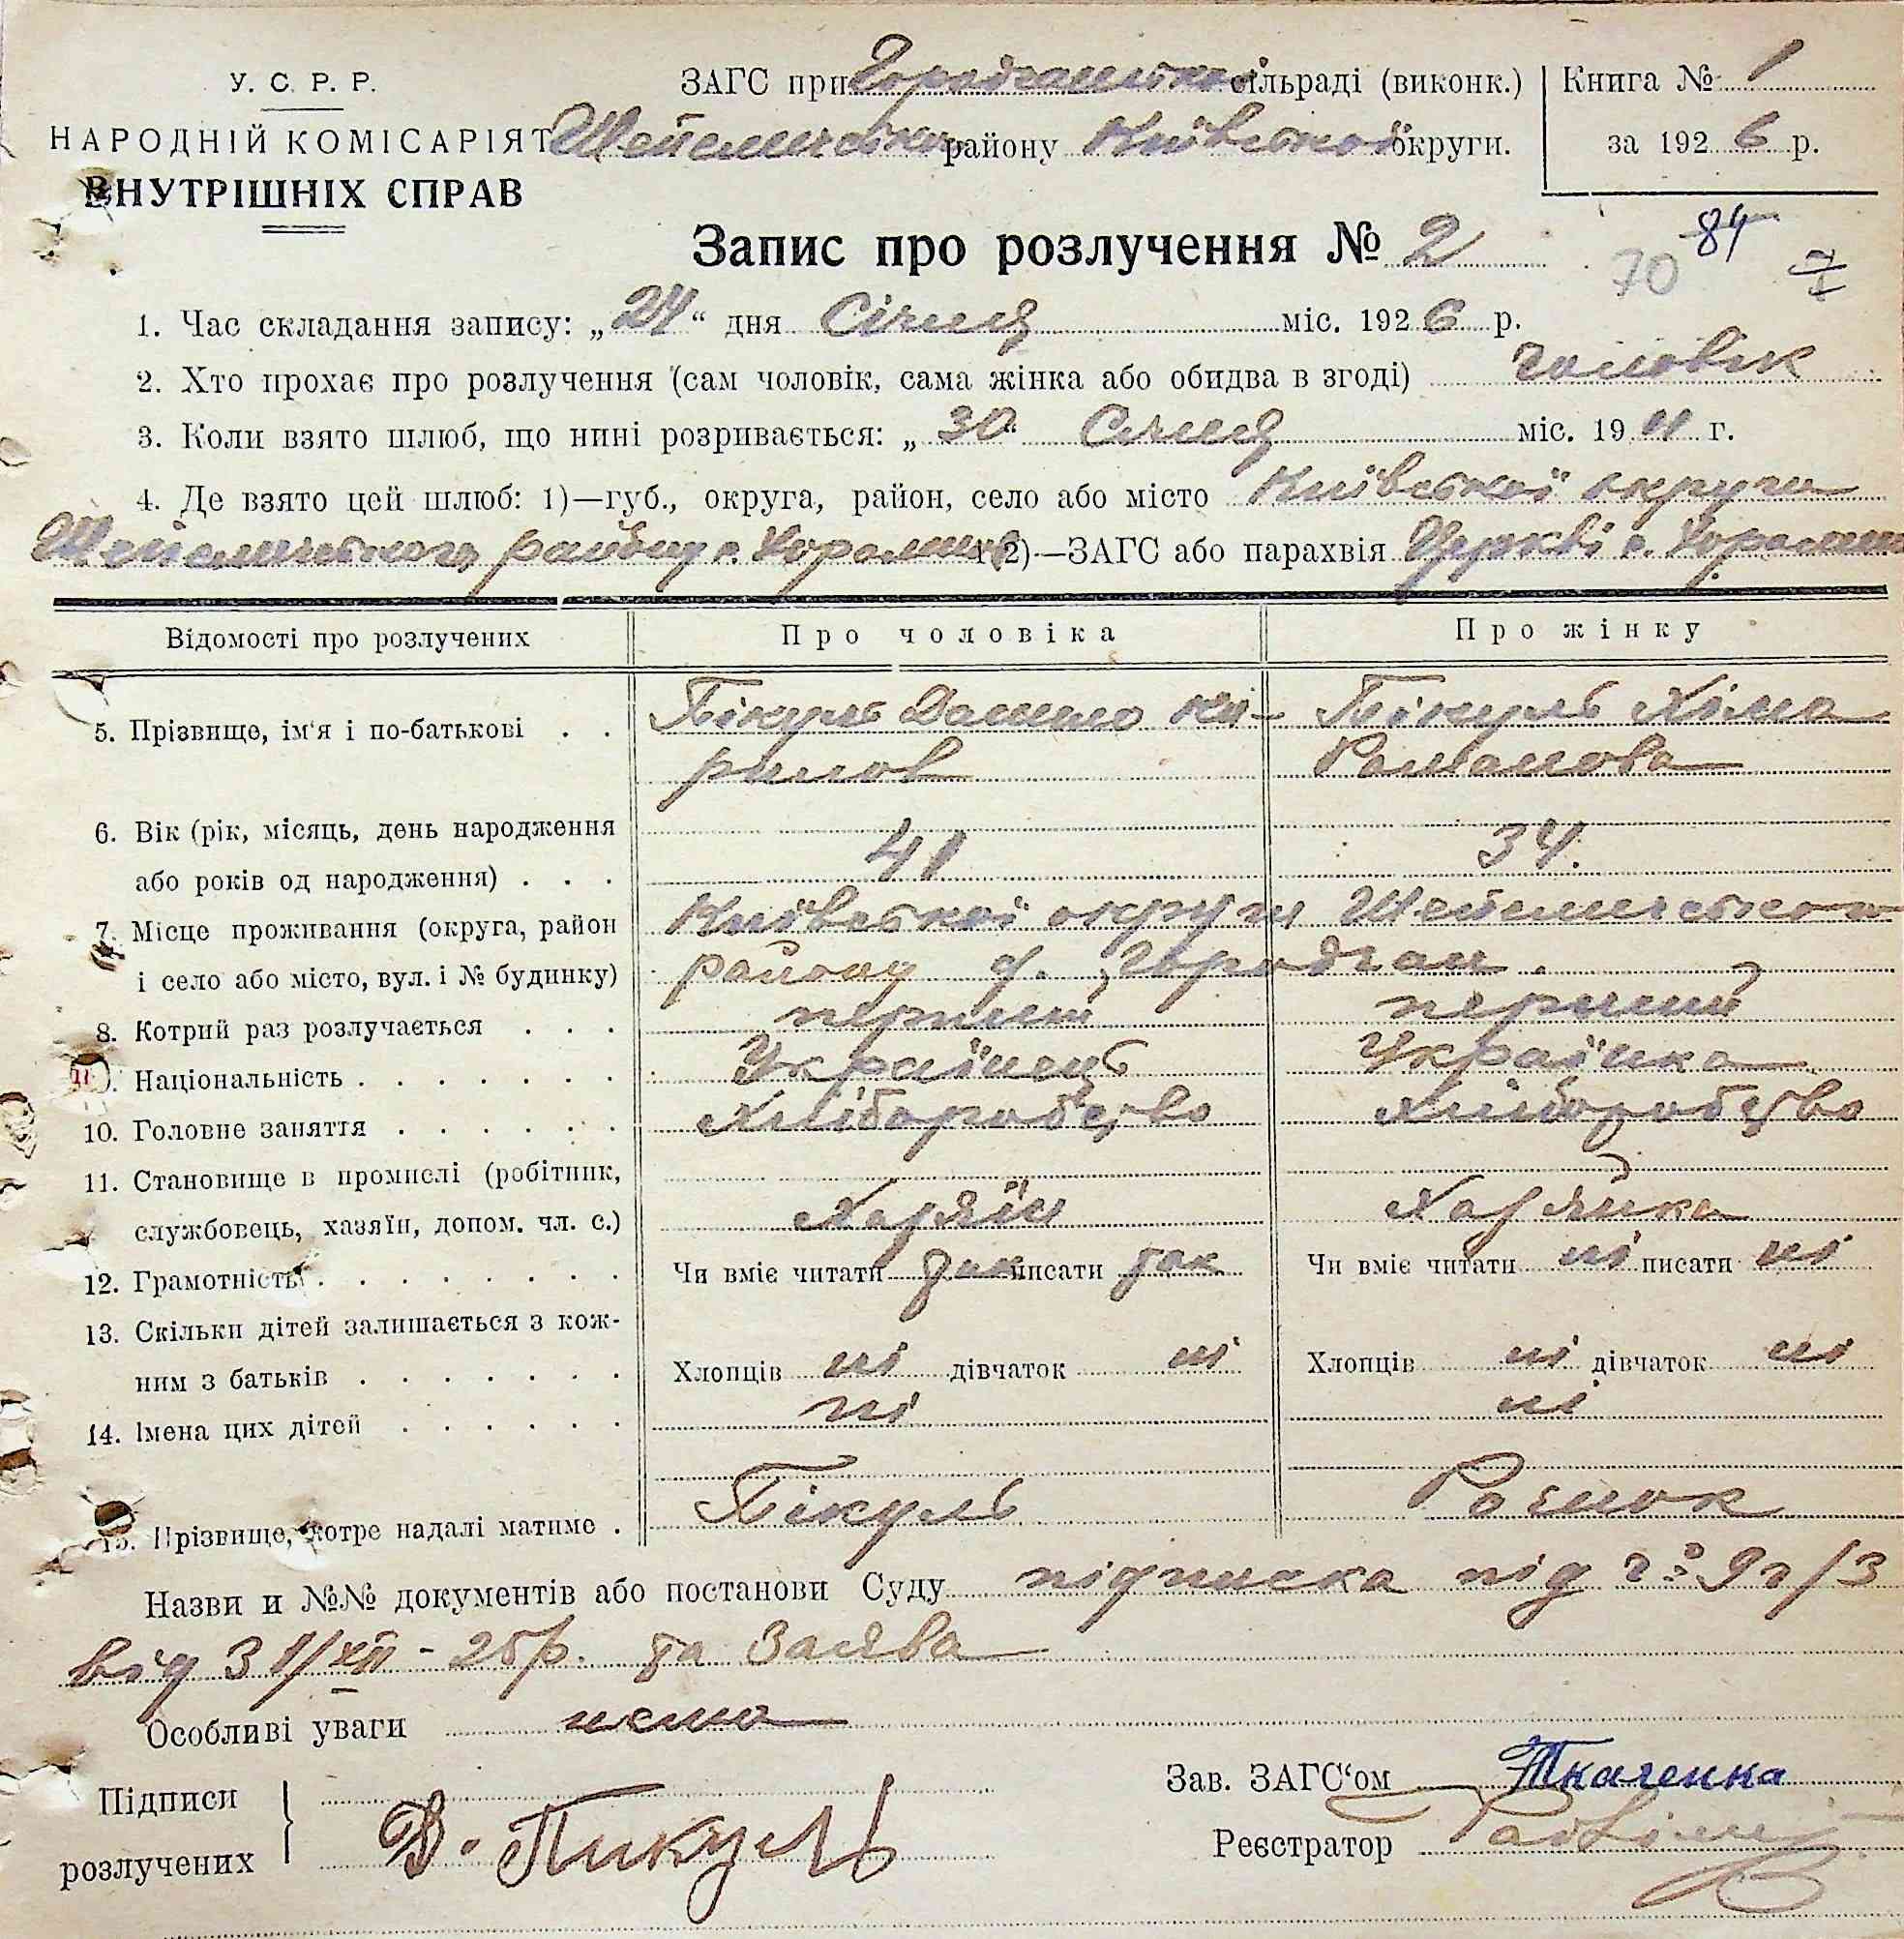 У. С. Р. Р.
НАРОДНІЙ КОМІСАРІЯТ
ВНУТРІШНІХ СПРАВ
ЗАГС при сільраді (виконк.)
району Київської округи.
Книга № 1
за 192 6 р.
Запис про розлучення № 2
84
70
1. Час складання запису: „ 24 “ дня Січня міс. 192 6 р.
2. Хто прохає про розлучення (сам чоловік, сама жінка або обидва в згоді) чоловік
3. Коли взято шлюб, що нині розривається: „ 30 Січня міс. 19 г.
4. Де взято цей шлюб: 1)—губ., округа, район, село або місто Київської округи
району с. 2)—ЗАГС або парахвія Церкві с.
Відомості про розлучених Про чоловіка Про жінку
5. Прізвище, ім'я і по-батькові Пікуль Данило Ки-
рилов
Пікуль Хіма
Романова
6. Вік (рік, місяць, день народження
або років од народження) 41 34.
7. Місце проживання (округа, район Київської округи
і село або місто, вул. і № будинку) району с.
8. Котрий раз розлучається перший перший
9. Національність Українець Українка
10. Головне заняття Хліборобство Хліборобство
11. Становище в промислі (робітник,
службовець, хазяїн, допом. чл. с.) Хазяїн Хазяйка
12. Грамотність Чи вміє читати так писати так Чи вміє читати ні писати ні
13. Скільки дітей залишається з кож-
ним з батьків Хлопців ні дівчаток ні Хлопців ні дівчаток ні
14. Імена цих дітей ні ні
15. Прізвище, котре надалі матиме Пікуль
Назви и №№ документів або постанови Суду підписка під
від 31/XII - 25р. та Заява
Особливі уваги нема
Підписи
розлучених
Д. Пикуль
Зав. ЗАГС‘ом Ткаченка
Реєстратор